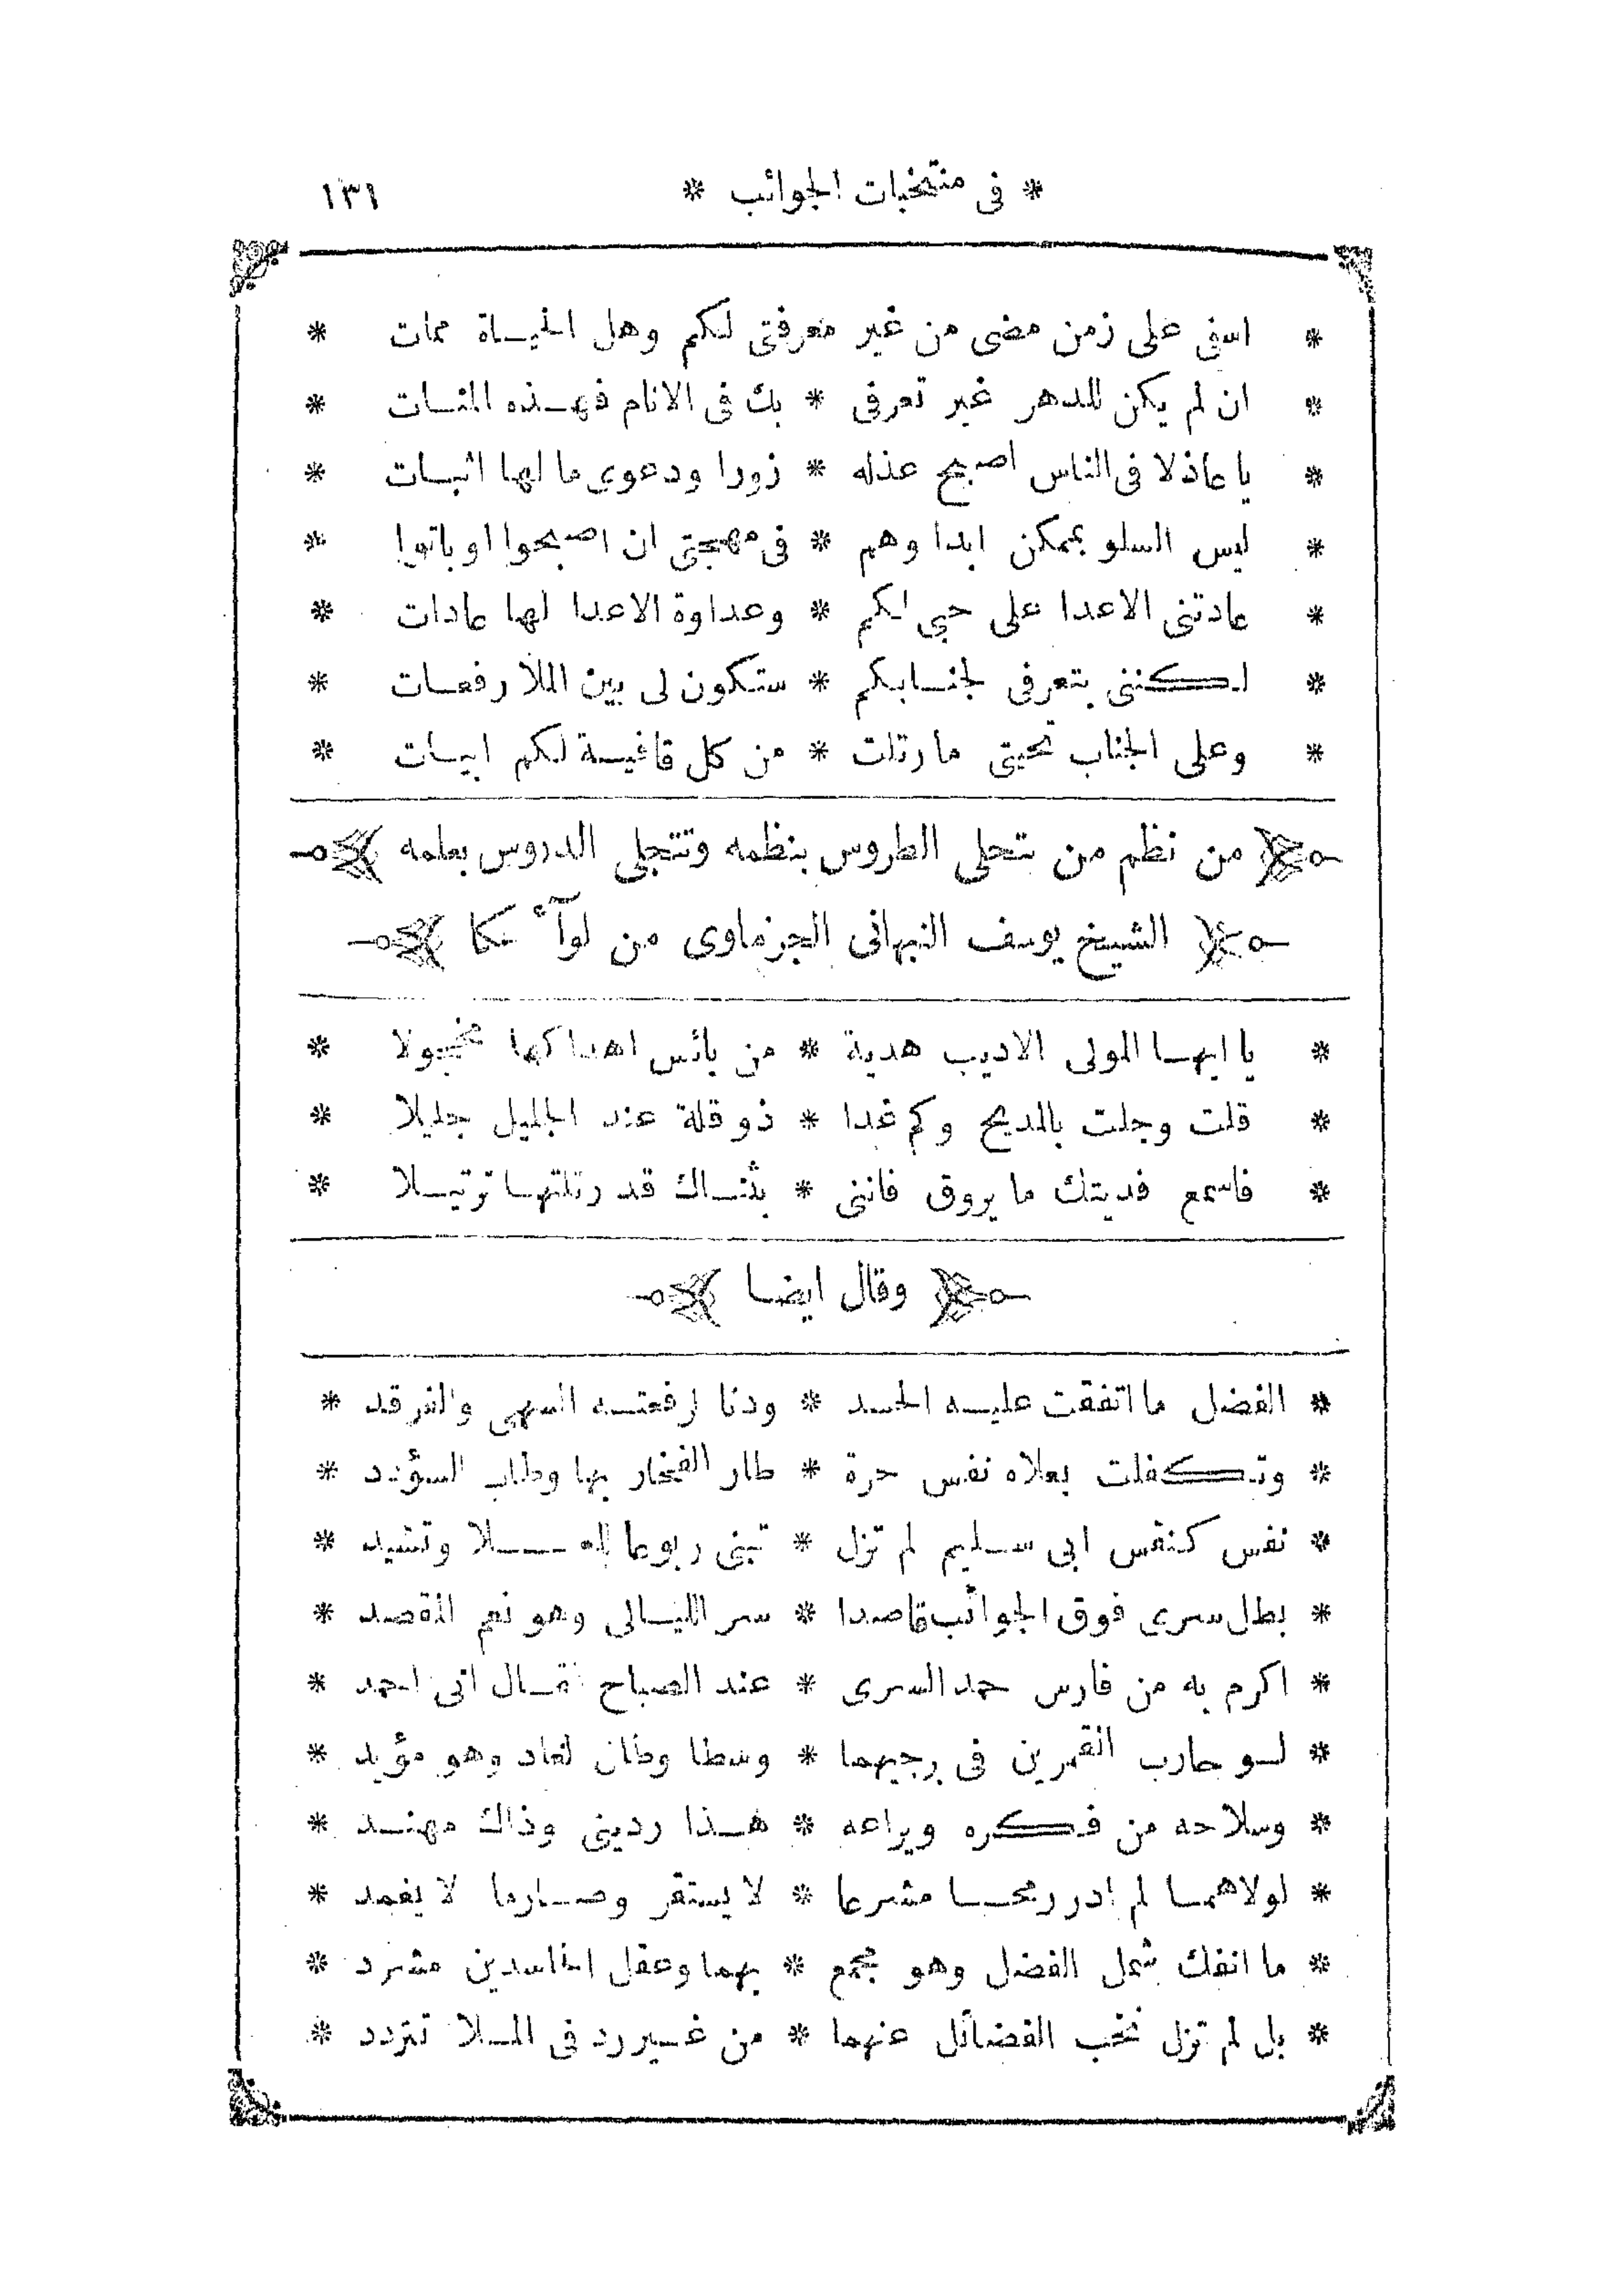 * فى منتخبات الجوائب * ١٣١
* اسفى على زمن مضى من غير معرفتى لكم وهل الحيـاة ممات *
* ان لم يكن للدهر غير تعرفى * بك فى الانام فهـذه المنـات *
* يا عاذلا فى الناس اصبح عذله * زورا ودعوى ما لها اثبـات *
* ليس السلو بممكن ابدا وهم * فى مهجتى ان اصبحوا او باتوا *
* عادتنى الاعدا على حبى لكم * وعداوة الاعدا لها عادات *
* لـكننى بتعرفى لجنـابكم * ستكون لى بين الملا رفعـات *
* وعلى الجناب تحيتى ما رتلت * من كل قافيـة لكم ابيـات *
من نظم من تتحلى الطروس بنظمه وتتجلى الدروس بعلمه
الشيخ يوسف النبهانى الجزماوى من لوآء عكا
* يا ايهـا المولى الاديب هدية * من بائس اهداكها مخجولا *
* قلت وجلت بالمديح وكم غدا * ذو قلة عند الجليل جليلا *
* فاسمع فديتك ما يروق فاننى * بثنـاك قد رتلتهـا ترتيـلا *
وقال ايضـا
* الفضل ما اتفقت عليـه الحسد * ودنا لرفعتـه السهى والفرقد *
* وتـكفلت بعلاه نفس حرة * طار الفخار بها وطاب السؤدد *
* نفس كنفس ابى سـليم لم تزل * تبنى ربوعا للعـلا وتشيد *
* بطل سرى فوق الجوائب قاصدا * سر الليـالى وهو نعم المقصد *
* اكرم به من فارس حمد السرى * عند الصباح فقـال انى احمد *
* لـو حارب القمرين فى برجيهما * وسطا وطان لعاد وهو مؤيد *
* وسلاحه من فـكره ويراعه * هـذا ردينى وذاك مهنـد *
* لولاهمـا لم ادر رمحـا مشرعا * لا يستقر وصـارما لا يغمد *
* ما انفك شمل الفضل وهو مجمع * بهما وعقل الحاسدين مشرد *
* بل لم تزل نخب الفضائل عنهما * من غـير رد فى المـلا تتردد *